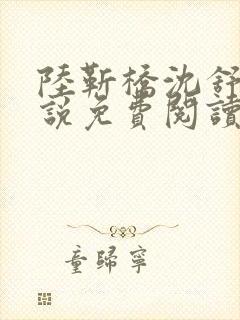 陸靳橋沈舒
說免費閱讀
童歸寧